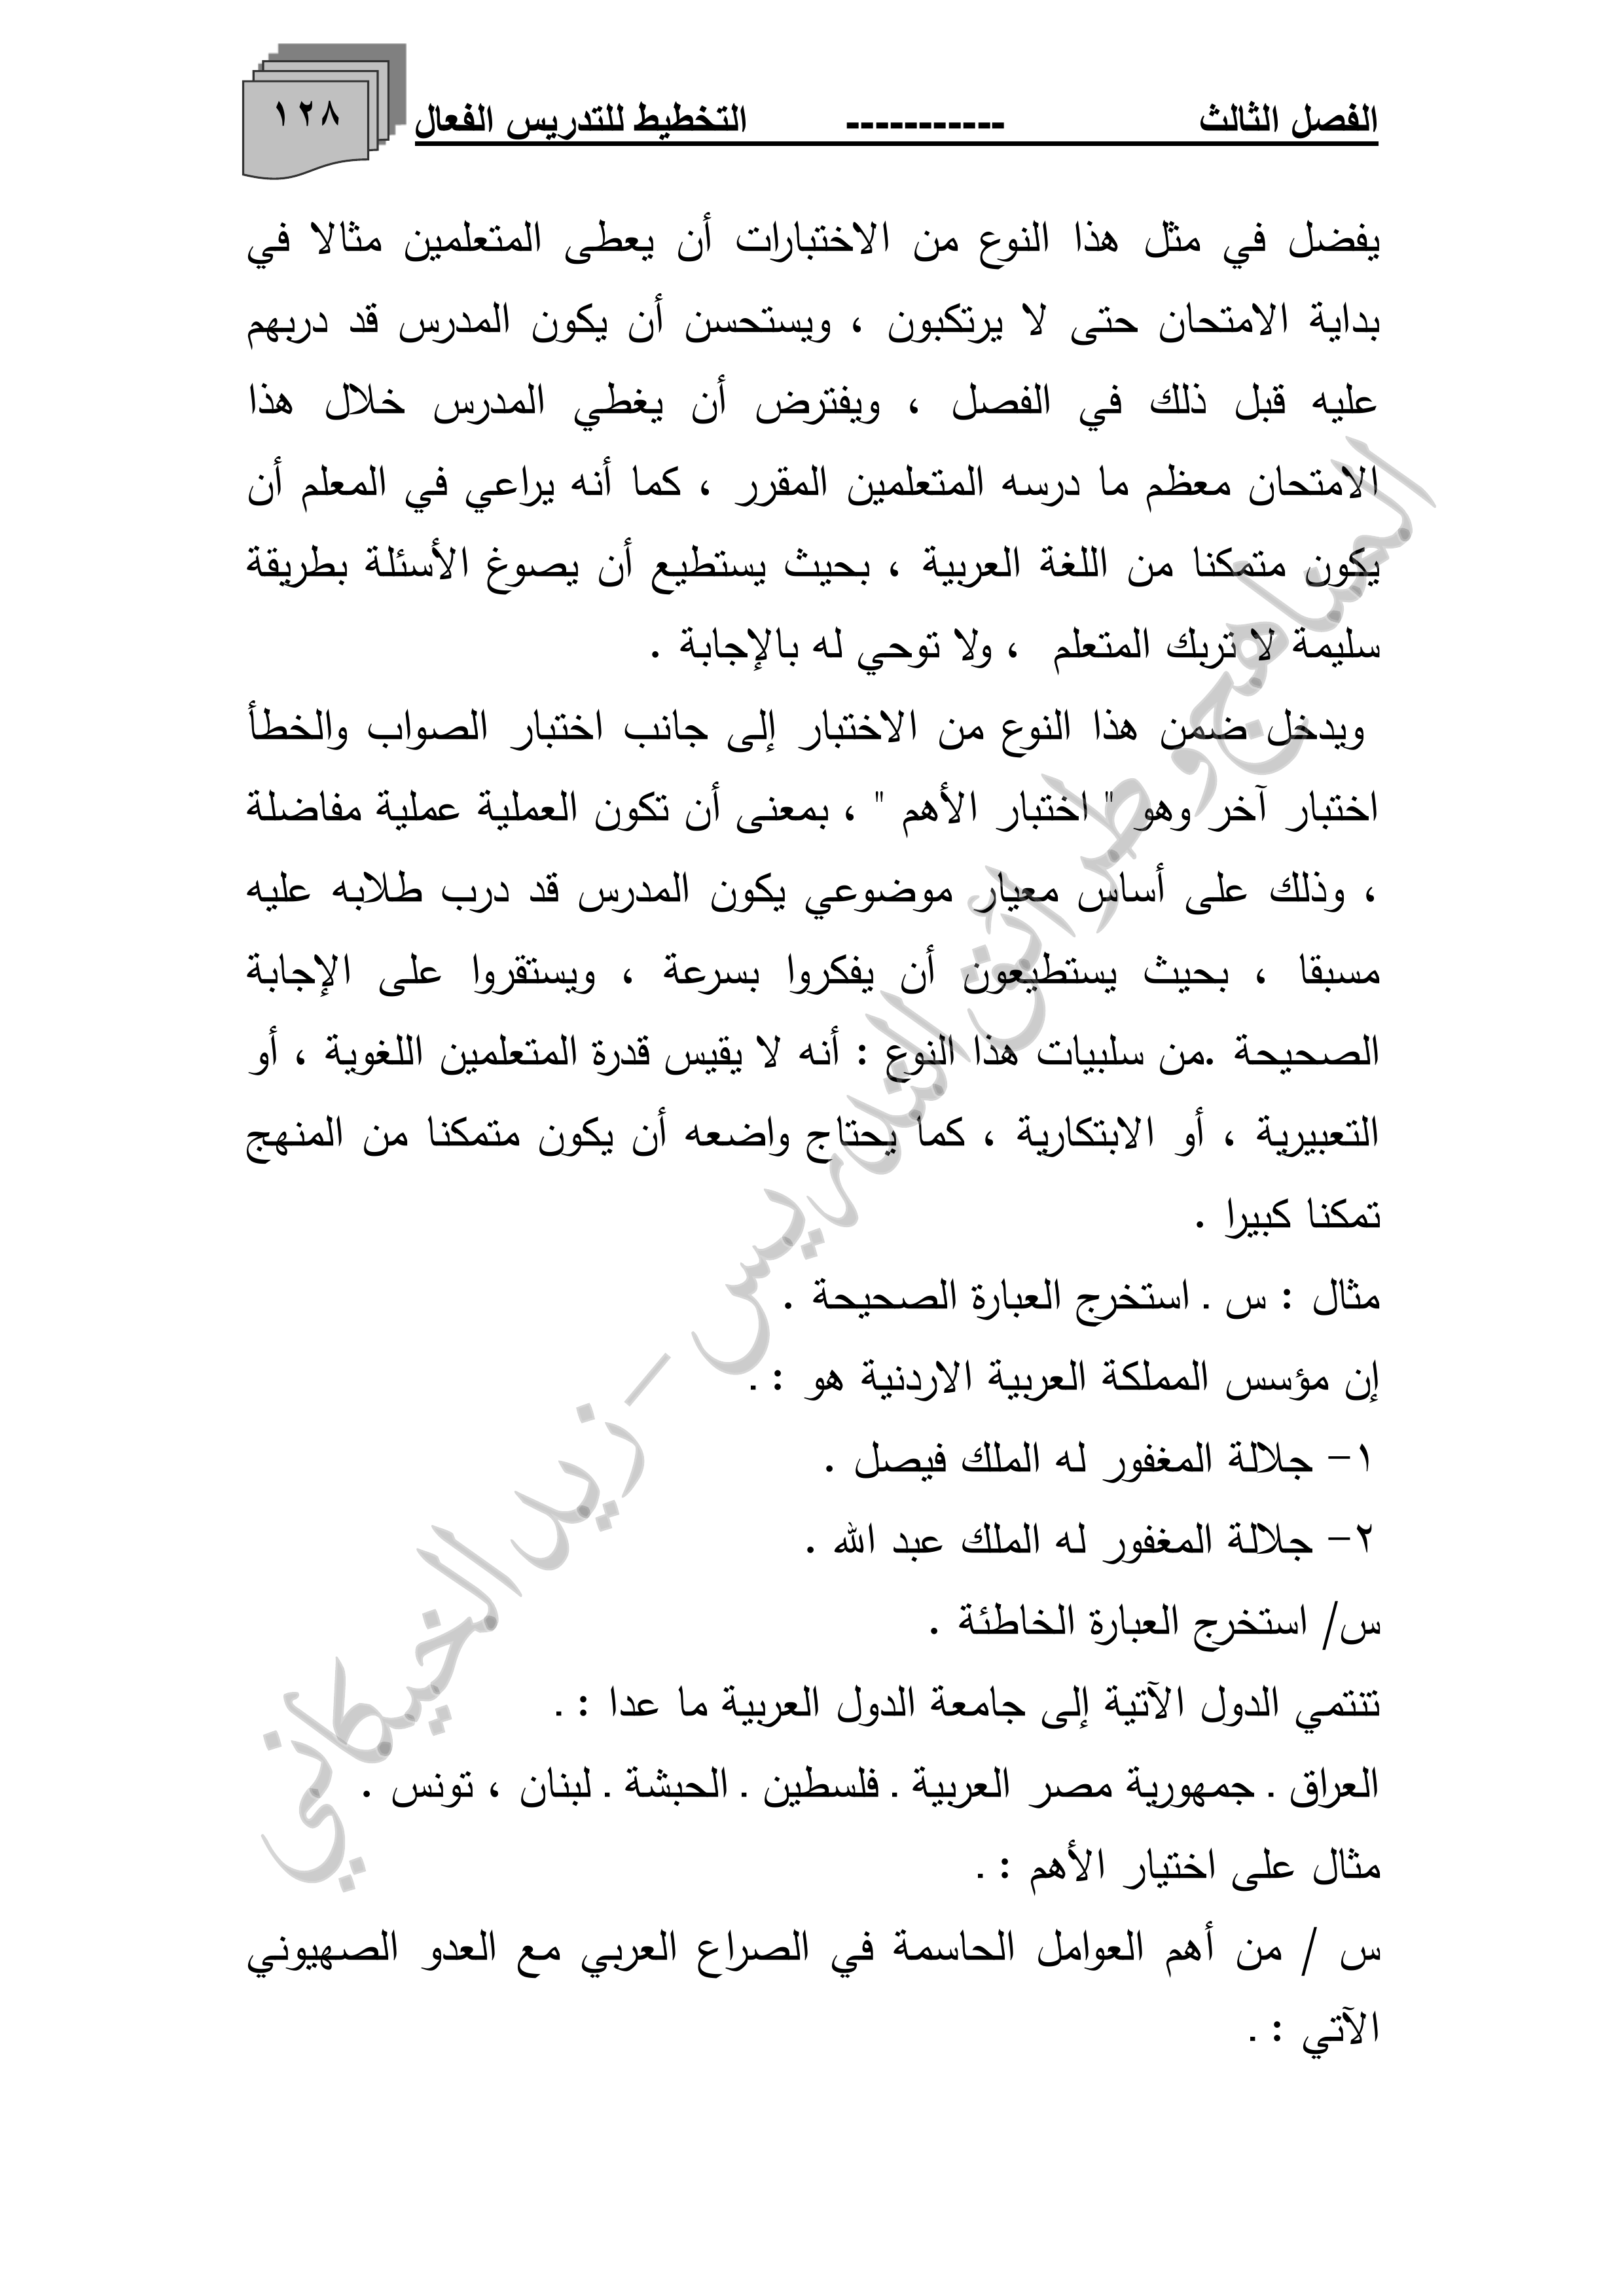 الفصل الثالث ----------- التخطيط للتدريس الفعال ١٢٨
يفضل في مثل هذا النوع من الاختبارات أن يعطى المتعلمين مثالا في
بداية الامتحان حتى لا يرتكبون ، ويستحسن أن يكون المدرس قد دربهم
عليه قبل ذلك في الفصل ، ويفترض أن يغطي المدرس خلال هذا
الامتحان معظم ما درسه المتعلمين المقرر ، كما أنه يراعي في المعلم أن
يكون متمكنا من اللغة العربية ، بحيث يستطيع أن يصوغ الأسئلة بطريقة
سليمة لا تربك المتعلم ، ولا توحي له بالإجابة .
ويدخل ضمن هذا النوع من الاختبار إلى جانب اختبار الصواب والخطأ
اختبار آخر وهو " اختبار الأهم " ، بمعنى أن تكون العملية عملية مفاضلة
، وذلك على أساس معيار موضوعي يكون المدرس قد درب طلابه عليه
مسبقا ، بحيث يستطيعون أن يفكروا بسرعة ، ويستقروا على الإجابة
الصحيحة .من سلبيات هذا النوع : أنه لا يقيس قدرة المتعلمين اللغوية ، أو
التعبيرية ، أو الابتكارية ، كما يحتاج واضعه أن يكون متمكنا من المنهج
تمكنا كبيرا .
مثال : س . استخرج العبارة الصحيحة .
إن مؤسس المملكة العربية الاردنية هو : .
١- جلالة المغفور له الملك فيصل .
٢- جلالة المغفور له الملك عبد الله .
س/ استخرج العبارة الخاطئة .
تنتمي الدول الآتية إلى جامعة الدول العربية ما عدا : .
العراق . جمهورية مصر العربية . فلسطين . الحبشة . لبنان ، تونس .
مثال على اختيار الأهم : .
س / من أهم العوامل الحاسمة في الصراع العربي مع العدو الصهيوني
الآتي : .
المناهج وطرائق التدريس – زيد الخيكاني